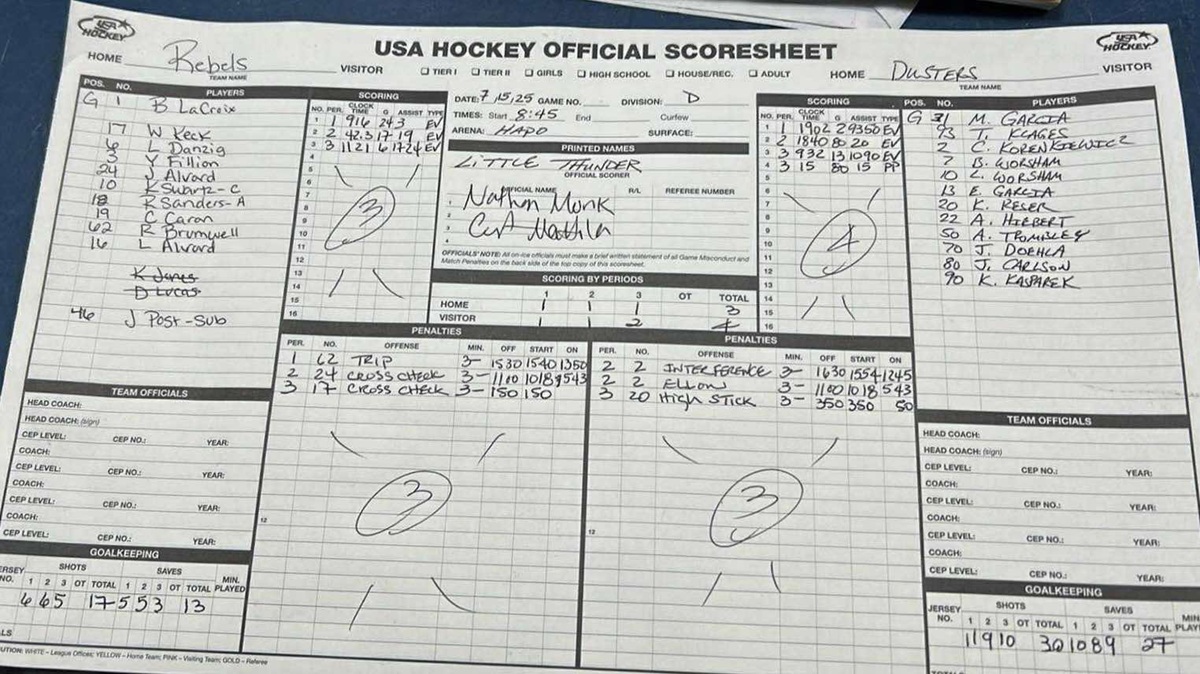 USA HOCKEY
USA HOCKEY OFFICIAL SCORESHEET
USA HOCKEY
HOME Rebels VISITOR
TEAM NAME
☐ TIER I ☐ TIER II ☐ GIRLS ☐ HIGH SCHOOL ☐ HOUSE/REC. ☐ ADULT
HOME DUSTERS VISITOR
TEAM NAME
POS. NO. PLAYERS
G 1 B LaCroix
17 W Keck
6 L Danzig
3 Y Fillion
24 J Alvord
10 K Swartz-C
18 R Sanders-A
19 C Caron
62 R Brumwell
16 L Alvord
K Jones
D Lucas
46 J Post-Sub
SCORING
NO. PER. CLOCK TIME G ASSIST TYPE
1 1 916 24 3 EV
2 2 42.3 17 19 EV
3 3 1121 6 17 24 EV
4
5
6
7
8
9
10
11
12
13
14
15
16
3
DATE: 7,15,25 GAME NO. DIVISION: D
TIMES: Start 8:45 End Curfew
ARENA: HAPO SURFACE:
PRINTED NAMES
LITTLE THUNDER
OFFICIAL SCORER
OFFICIAL NAME R/L REFEREE NUMBER
1 Nathan Monk
2
3
4
OFFICIALS' NOTE: All on-ice officials must make a brief written statement of all Game Misconduct and
Match Penalties on the back side of the top copy of this scoresheet.
SCORING BY PERIODS
1 2 3 OT TOTAL
HOME 1 1 1 3
VISITOR 1 1 2 4
SCORING
NO. PER. CLOCK TIME G ASSIST TYPE
1 1 1902 2 93 50 EV
2 2 1840 80 20 EV
3 3 932 13 10 90 EV
4 3 15 80 15 PP
5
6
7
8
9
10
11
12
13
14
15
16
4
POS. NO. PLAYERS
G 31 M. GARCIA
93 T. KLAGES
2 C. KORENKIEWICZ
7 B. WORSHAM
10 L. WORSHAM
13 E. GARCIA
20 K. RESER
22 A. HIEBERT
50 A. TROMBLEY
70 J. DOEHLA
80 J. CARLSON
90 K. KASPAREK
PENALTIES
PER. NO. OFFENSE MIN. OFF START ON
1 62 TRIP 3- 1530 1540 1350
2 24 CROSS CHECK 3- 1100 1018 543
3 17 CROSS CHECK 3- 150 150
12
3
PENALTIES
PER. NO. OFFENSE MIN. OFF START ON
2 2 INTERFERENCE 3- 1630 1554 1245
2 2 ELBOW 3- 1100 1018 543
3 20 High STICK 3- 350 350 50
12
3
TEAM OFFICIALS
HEAD COACH:
HEAD COACH: (sign)
CEP LEVEL: CEP NO.: YEAR:
COACH:
CEP LEVEL: CEP NO.: YEAR:
COACH:
CEP LEVEL: CEP NO.: YEAR:
COACH:
CEP LEVEL: CEP NO.: YEAR:
GOALKEEPING
JERSEY NO. SHOTS SAVES MIN. PLAYED
1 2 3 OT TOTAL 1 2 3 OT TOTAL
6 6 5 17 5 5 3 13
TEAM OFFICIALS
HEAD COACH:
HEAD COACH: (sign)
CEP LEVEL: CEP NO.: YEAR:
COACH:
CEP LEVEL: CEP NO.: YEAR:
COACH:
CEP LEVEL: CEP NO.: YEAR:
COACH:
CEP LEVEL: CEP NO.: YEAR:
GOALKEEPING
JERSEY NO. SHOTS SAVES
1 2 3 OT TOTAL 1 2 3 OT TOTAL
11 9 10 30 10 8 9 27
WHITE – League Offices; YELLOW – Home Team; PINK – Visiting Team; GOLD – Referee